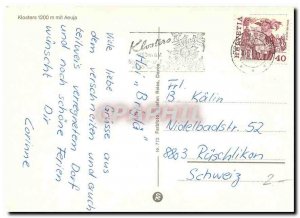 Klosters 1200 m mit Aeuja
Klosters
HELVETIA
40
Hoi "Bruta"
Viele liebe Grüsse aus
dem verschneiten und auch
teilweis verregneten Dorf
und noch schöne Ferien
wünscht Dir
Corinne
Frl.
B. Kälin
Nidelbadstr. 52
8803 Rüschlikon
Schweiz
2.-